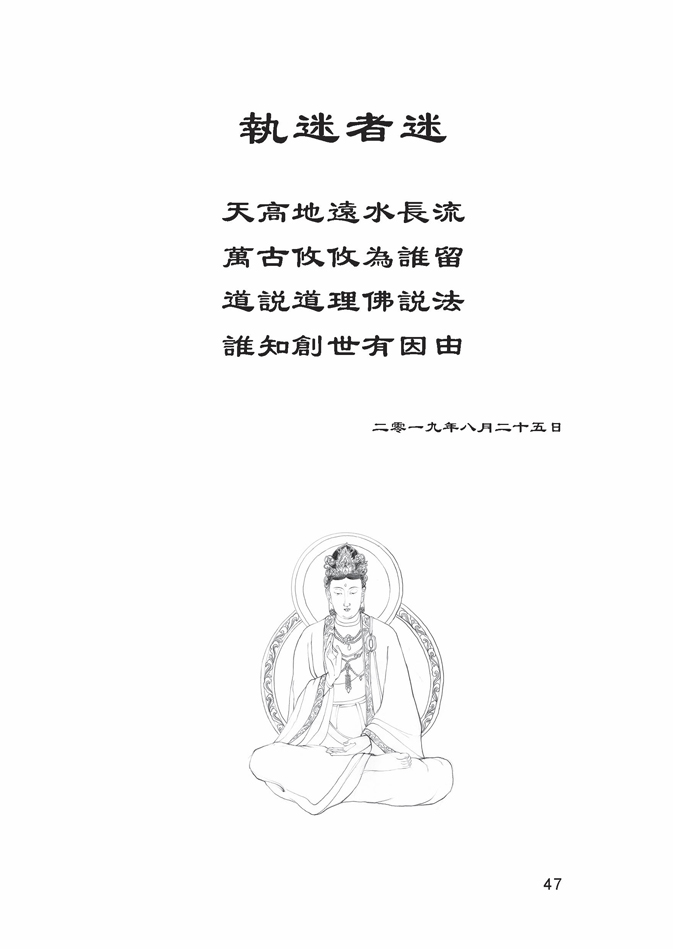 執迷者迷
天高地遠水長流
萬古攸攸為誰留
道説道理佛説法
誰知創世有因由
二零一九年八月二十五日
47